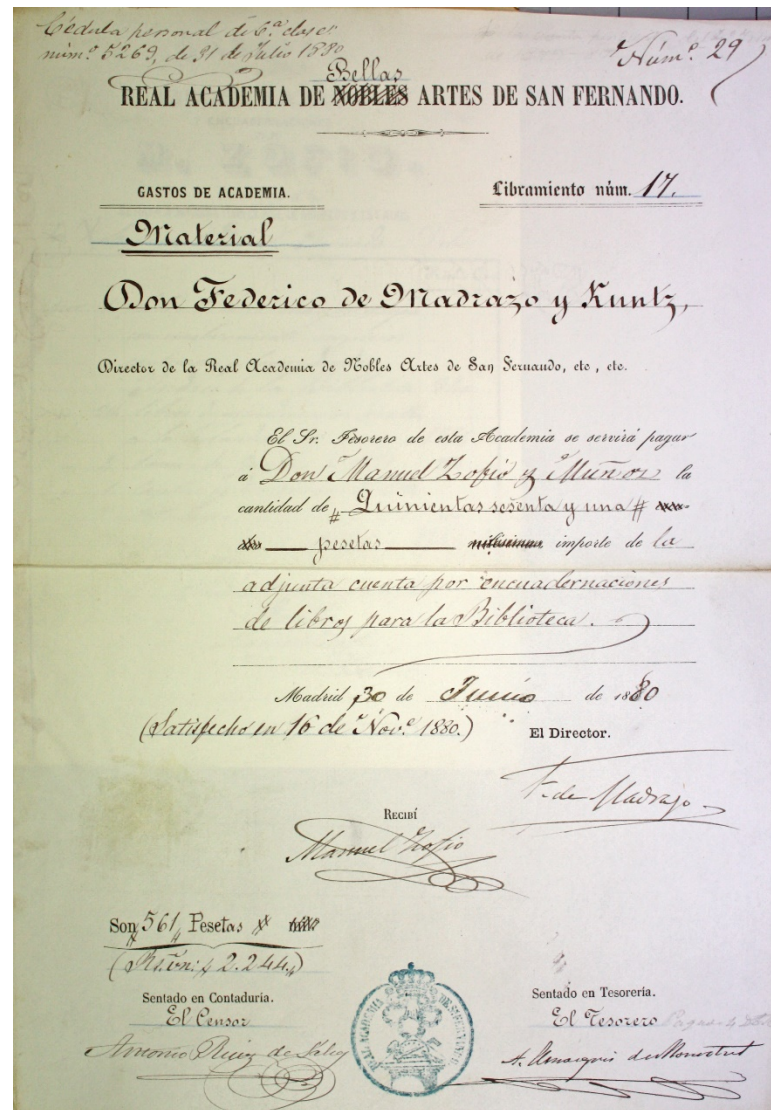 Cédula personal de 6.ª clase
núm.º 5269, de 31 de Julio 1880
Núm.º 29
Bellas
REAL ACADEMIA DE NOBLES ARTES DE SAN FERNANDO.
GASTOS DE ACADEMIA.
Libramiento núm. 17.
Material
Don Federico de Madrazo y Kuntz,
Director de la Real Academia de Nobles Artes de San Fernando, etc, etc.
El Sr. Tesorero de esta Academia se servirá pagar
á Don Manuel Zofio y Muñoz la
cantidad de # Quinientas sesenta y una #
pesetas milésimas importe de la
adjunta cuenta por encuadernaciones
de libros para la Biblioteca.
Madrid 30 de Junio de 1880
(Satisfecho en 16 de Nov.º 1880.)
El Director.
F. de Madrazo
RECIBÍ
Manuel Zofio
Son 561 Pesetas
(Rs. vn: 2.244)
Sentado en Contaduría.
El Censor
Antonio Ruiz de Salces
REAL ACADEMIA DE S. FERNANDO
Sentado en Tesorería.
El Tesorero
El Marqués de Monistrol